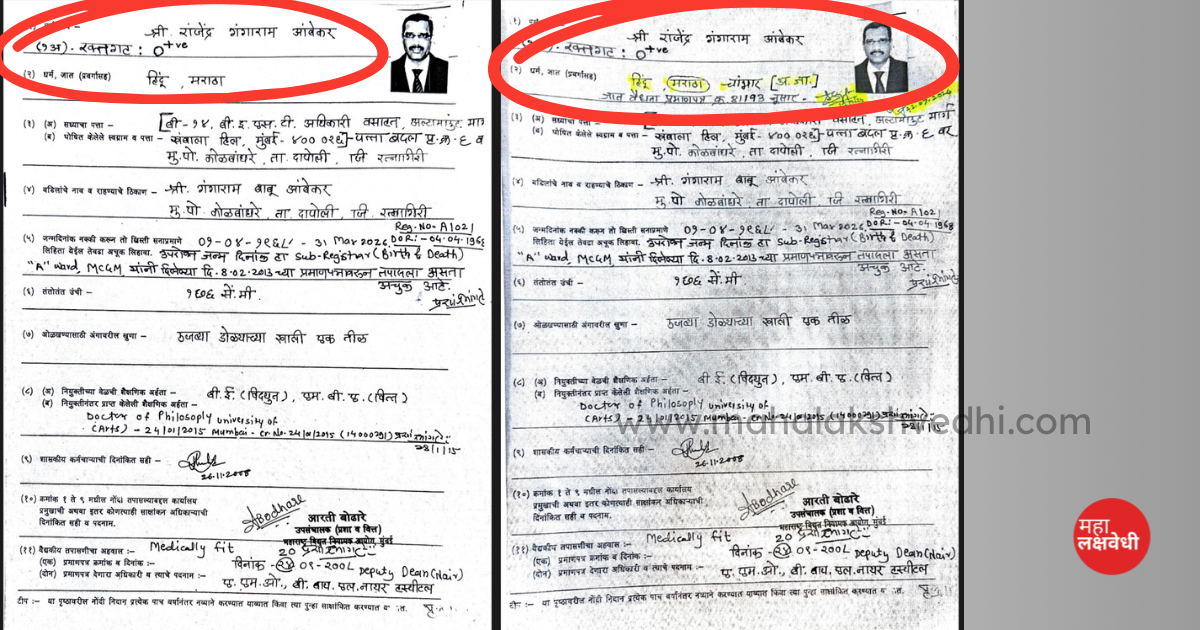 श्री राजेंद्र गंगाराम आंबेकर
(१अ). रक्तगट : O+ve
(२) धर्म, जात (प्रवर्गासह) हिंदू , मराठा
(३) (अ) सध्याचा पत्ता - [बी - १४, बी. इ. एस. टी. अधिकारी वसाहत, अल्टामाऊंट मार्ग
(ब) घोषित केलेले स्वग्राम व पत्ता - खंबाला हिल, मुंबई - ४०० ०२६]-पत्ता बदल पृ.क्र.६ वर
मु.पो. कोळबांधरे , ता. दापोली , जि रत्नागिरी
(४) वडिलांचे नाव व राहण्याचे ठिकाण - श्री. गंगाराम बाबू आंबेकर
मु.पो. कोळबांधरे , ता दापोली , जि. रत्नागिरी
Reg. No- A1021
(५) जन्मदिनांक नक्की करून तो ख्रिस्ती सनाप्रमाणे ०९-०४-१९६८ - 31 Mar 2026, DOR:-04.04.1968
लिहिता येईल तेवढा अचूक लिहावा. उपरोक्त जन्म दिनांक हा Sub-Registrar (Birth & Death)
"A" ward, MCGM यांनी दिलेल्या दि. 8.02.2013 च्या प्रमाणपत्रावरून तपासला असता
अचुक आहे.
(६) तंतोतंत उंची - १७६ सें. मी.
(७) ओळखण्यासाठी अंगावरील खुणा - उजव्या डोळ्याच्या खाली एक तीळ
(८) (अ) नियुक्तीच्या वेळची शैक्षणिक अर्हता - बी. ई. (विद्युत) , एम. बी. ए. (वित्त)
(ब) नियुक्तीनंतर प्राप्त केलेली शैक्षणिक अर्हता -
Doctor of Philosoply University of
(Arts) - 24/01/2015 Mumbai -
28/1/15
(९) शासकीय कर्मचाऱ्याची दिनांकित सही -
26.11.2008
(१०) क्रमांक १ ते ९ मधील नोंदा तपासल्याबद्दल कार्यालय
प्रमुखाची अथवा इतर कोणत्याही साक्षांकन अधिकाऱ्याची
दिनांकित सही व पदनाम.
Bodhare
आरती बोढारे
उपसंचालक (प्रशा व वित्त)
महाराष्ट्र विद्युत नियामक आयोग, मुंबई
(११) वैद्यकीय तपासणीचा अहवाल :- Medically fit
(एक) प्रमाणपत्र क्रमांक व दिनांक :- दिनांक -
(दोन) प्रमाणपत्र देणारा अधिकारी व त्याचे पदनाम :- Deputy Dean (Nair)
ए. एम. ओ., बी. वाय. एल. नायर हॉस्पीटल
टीप :- या पृष्ठावरील नोंदी निदान प्रत्येक पाच वर्षानंतर नव्याने करण्यात याव्यात किंवा त्या पुन्हा साक्षांकित करण्यात याव्यात.
श्री राजेंद्र गंगाराम आंबेकर
रक्तगट : O+ve
(२) धर्म, जात (प्रवर्गासह) हिंदू , (मराठा) - चांभार [अ.जा.]
जात वैधता प्रमाणपत्र क्र. 81193 नुसार -
(३) (अ) सध्याचा पत्ता - अधिकारी वसाहत, अल्टामाऊंट मार्ग
(ब) घोषित केलेले स्वग्राम व पत्ता - खंबाला हिल, मुंबई - ४०० ०२६]-पत्ता बदल पृ.क्र.६ वर
मु.पो. कोळबांधरे , ता. दापोली , जि रत्नागिरी
(४) वडिलांचे नाव व राहण्याचे ठिकाण - श्री. गंगाराम बाबू आंबेकर
मु.पो. कोळबांधरे , ता दापोली , जि. रत्नागिरी
Reg. No- A1021
(५) जन्मदिनांक नक्की करून तो ख्रिस्ती सनाप्रमाणे ०९-०४-१९६८ - 31 Mar 2026, DOR:-04.04.1968
लिहिता येईल तेवढा अचूक लिहावा. उपरोक्त जन्म दिनांक हा Sub-Registrar (Birth & Death)
"A" ward, MCGM यांनी दिलेल्या दि. 8.02.2013 च्या प्रमाणपत्रावरून तपासला असता
अचुक आहे.
(६) तंतोतंत उंची - १७६ सें. मी.
(७) ओळखण्यासाठी अंगावरील खुणा - उजव्या डोळ्याच्या खाली एक तीळ
(८) (अ) नियुक्तीच्या वेळची शैक्षणिक अर्हता - बी. ई. (विद्युत) , एम. बी. ए. (वित्त)
(ब) नियुक्तीनंतर प्राप्त केलेली शैक्षणिक अर्हता -
Doctor of Philosoply University of
(Arts) - 24/01/2015 Mumbai -
28/1/15
www.mahalakshvedhi.com
(९) शासकीय कर्मचाऱ्याची दिनांकित सही -
26.11.2008
(१०) क्रमांक १ ते ९ मधील नोंदा तपासल्याबद्दल कार्यालय
प्रमुखाची अथवा इतर कोणत्याही साक्षांकन अधिकाऱ्याची
दिनांकित सही व पदनाम.
Bodhare
आरती बोढारे
उपसंचालक (प्रशा व वित्त)
महाराष्ट्र विद्युत नियामक आयोग, मुंबई
(११) वैद्यकीय तपासणीचा अहवाल :- Medically fit
(एक) प्रमाणपत्र क्रमांक व दिनांक :- दिनांक -
(दोन) प्रमाणपत्र देणारा अधिकारी व त्याचे पदनाम :- Deputy Dean (Nair)
ए. एम. ओ., बी. वाय. एल. नायर हॉस्पीटल
टीप :- या पृष्ठावरील नोंदी निदान प्रत्येक पाच वर्षानंतर नव्याने करण्यात याव्यात किंवा त्या पुन्हा साक्षांकित करण्यात याव्यात.
महा
लक्षवेधी